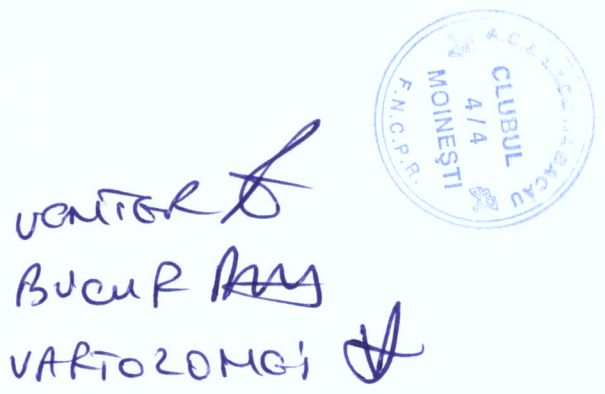 A.C.A.
BACĂU
CLUBUL
4/4
MOINEȘTI
F.N.C.P.R.
VENTER
BUCUR
VARTOLOMEI